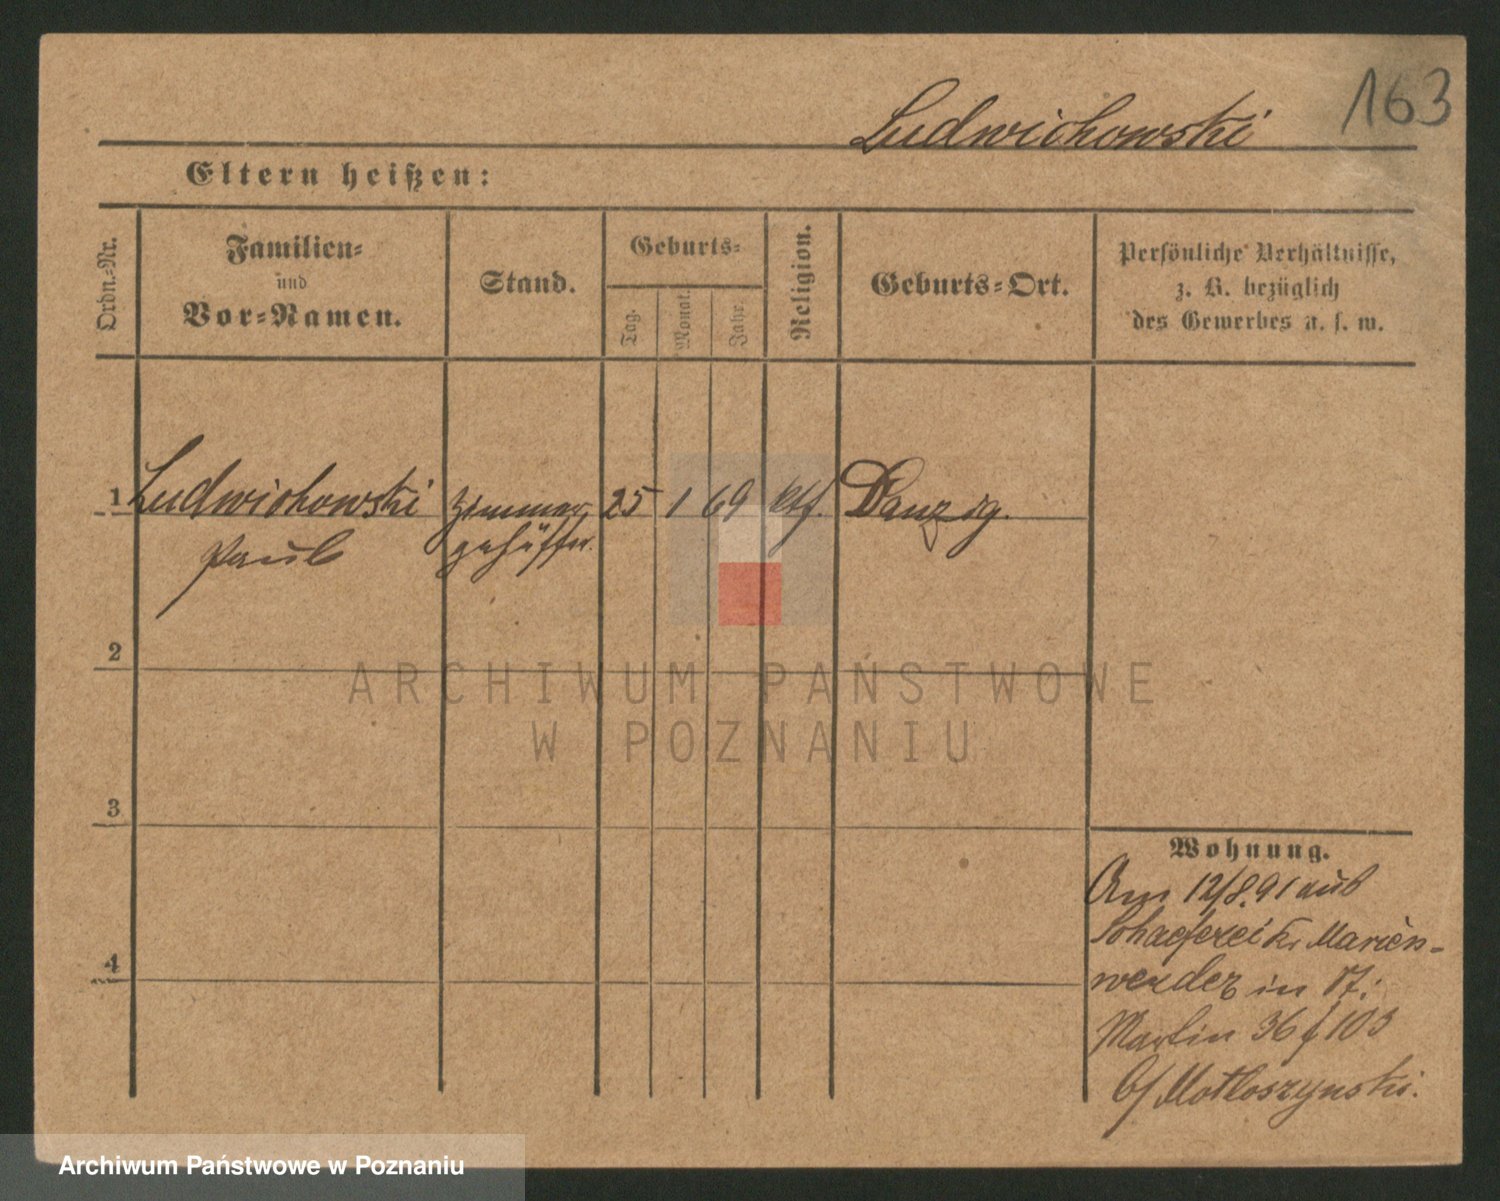 163
Ludwichowski
Eltern heißen:
Ordn.-Nr.
Familien-
und
Vor-Namen.
Stand.
Geburts-
Tag.
Monat.
Jahr.
Religion.
Geburts-Ort.
Persönliche Verhältnisse,
z. B. bezüglich
des Gewerbes u. s. w.
1 Ludwichowski Zimmer 25 1 69 ktf. Danzig.
Paul
2
ARCHIWUM PAŃSTWOWE
W POZNANIU
3
Wohnung.
Am 12/8.91 aus
Schaeferei Kr Marien-
4
werder in St:
Martin 36 f 103
b/ Motloszynski.
Archiwum Państwowe w Poznaniu